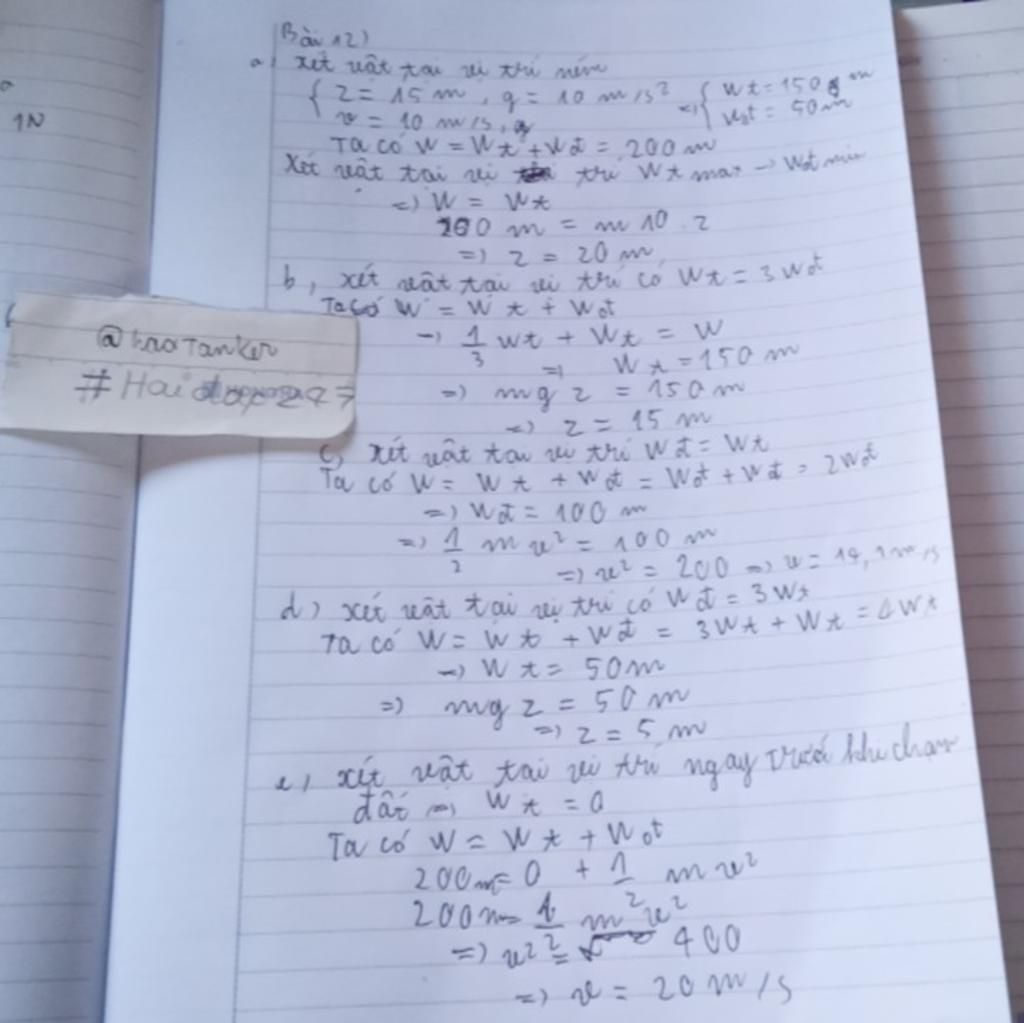 1N
Bài 12)
a) Xét vật tại vị trí ném
{ z = 15 m , g = 10 m/s² => { Wt = 150 m
v = 10 m/s, Wđt = 50 m
Ta có W = Wt + Wđ = 200 m
Xét vật tại vị trí Wt max → Wđ min
=> W = Wt
200 m = m 10 . z
=> z = 20 m
b, xét vật tại vị trí có Wt = 3 Wđ
Ta có W = Wt + Wđ
=> 1/3 Wt + Wt = W
=> Wt = 150 m
=> mg z = 150 m
=> z = 15 m
@
#Hoi
c, xét vật tại vị trí Wđ = Wt
Ta có W = Wt + Wđ = Wđ + Wđ = 2Wđ
=> Wđ = 100 m
=> 1/2 m v² = 100 m
=> v² = 200 => v = 14,1 m/s
d) xét vật tại vị trí có Wđ = 3 Wt
Ta có W = Wt + Wđ = 3Wt + Wt = 4Wt
=> Wt = 50 m
=> mg z = 50 m
=> z = 5 m
e, xét vật tại vị trí ngay trước khi chạm
đất => Wt = 0
Ta có W = Wt + Wđ
200m = 0 + 1/2 m v²
200m = 1/2 m v²
=> v² = 400
=> v = 20 m/s